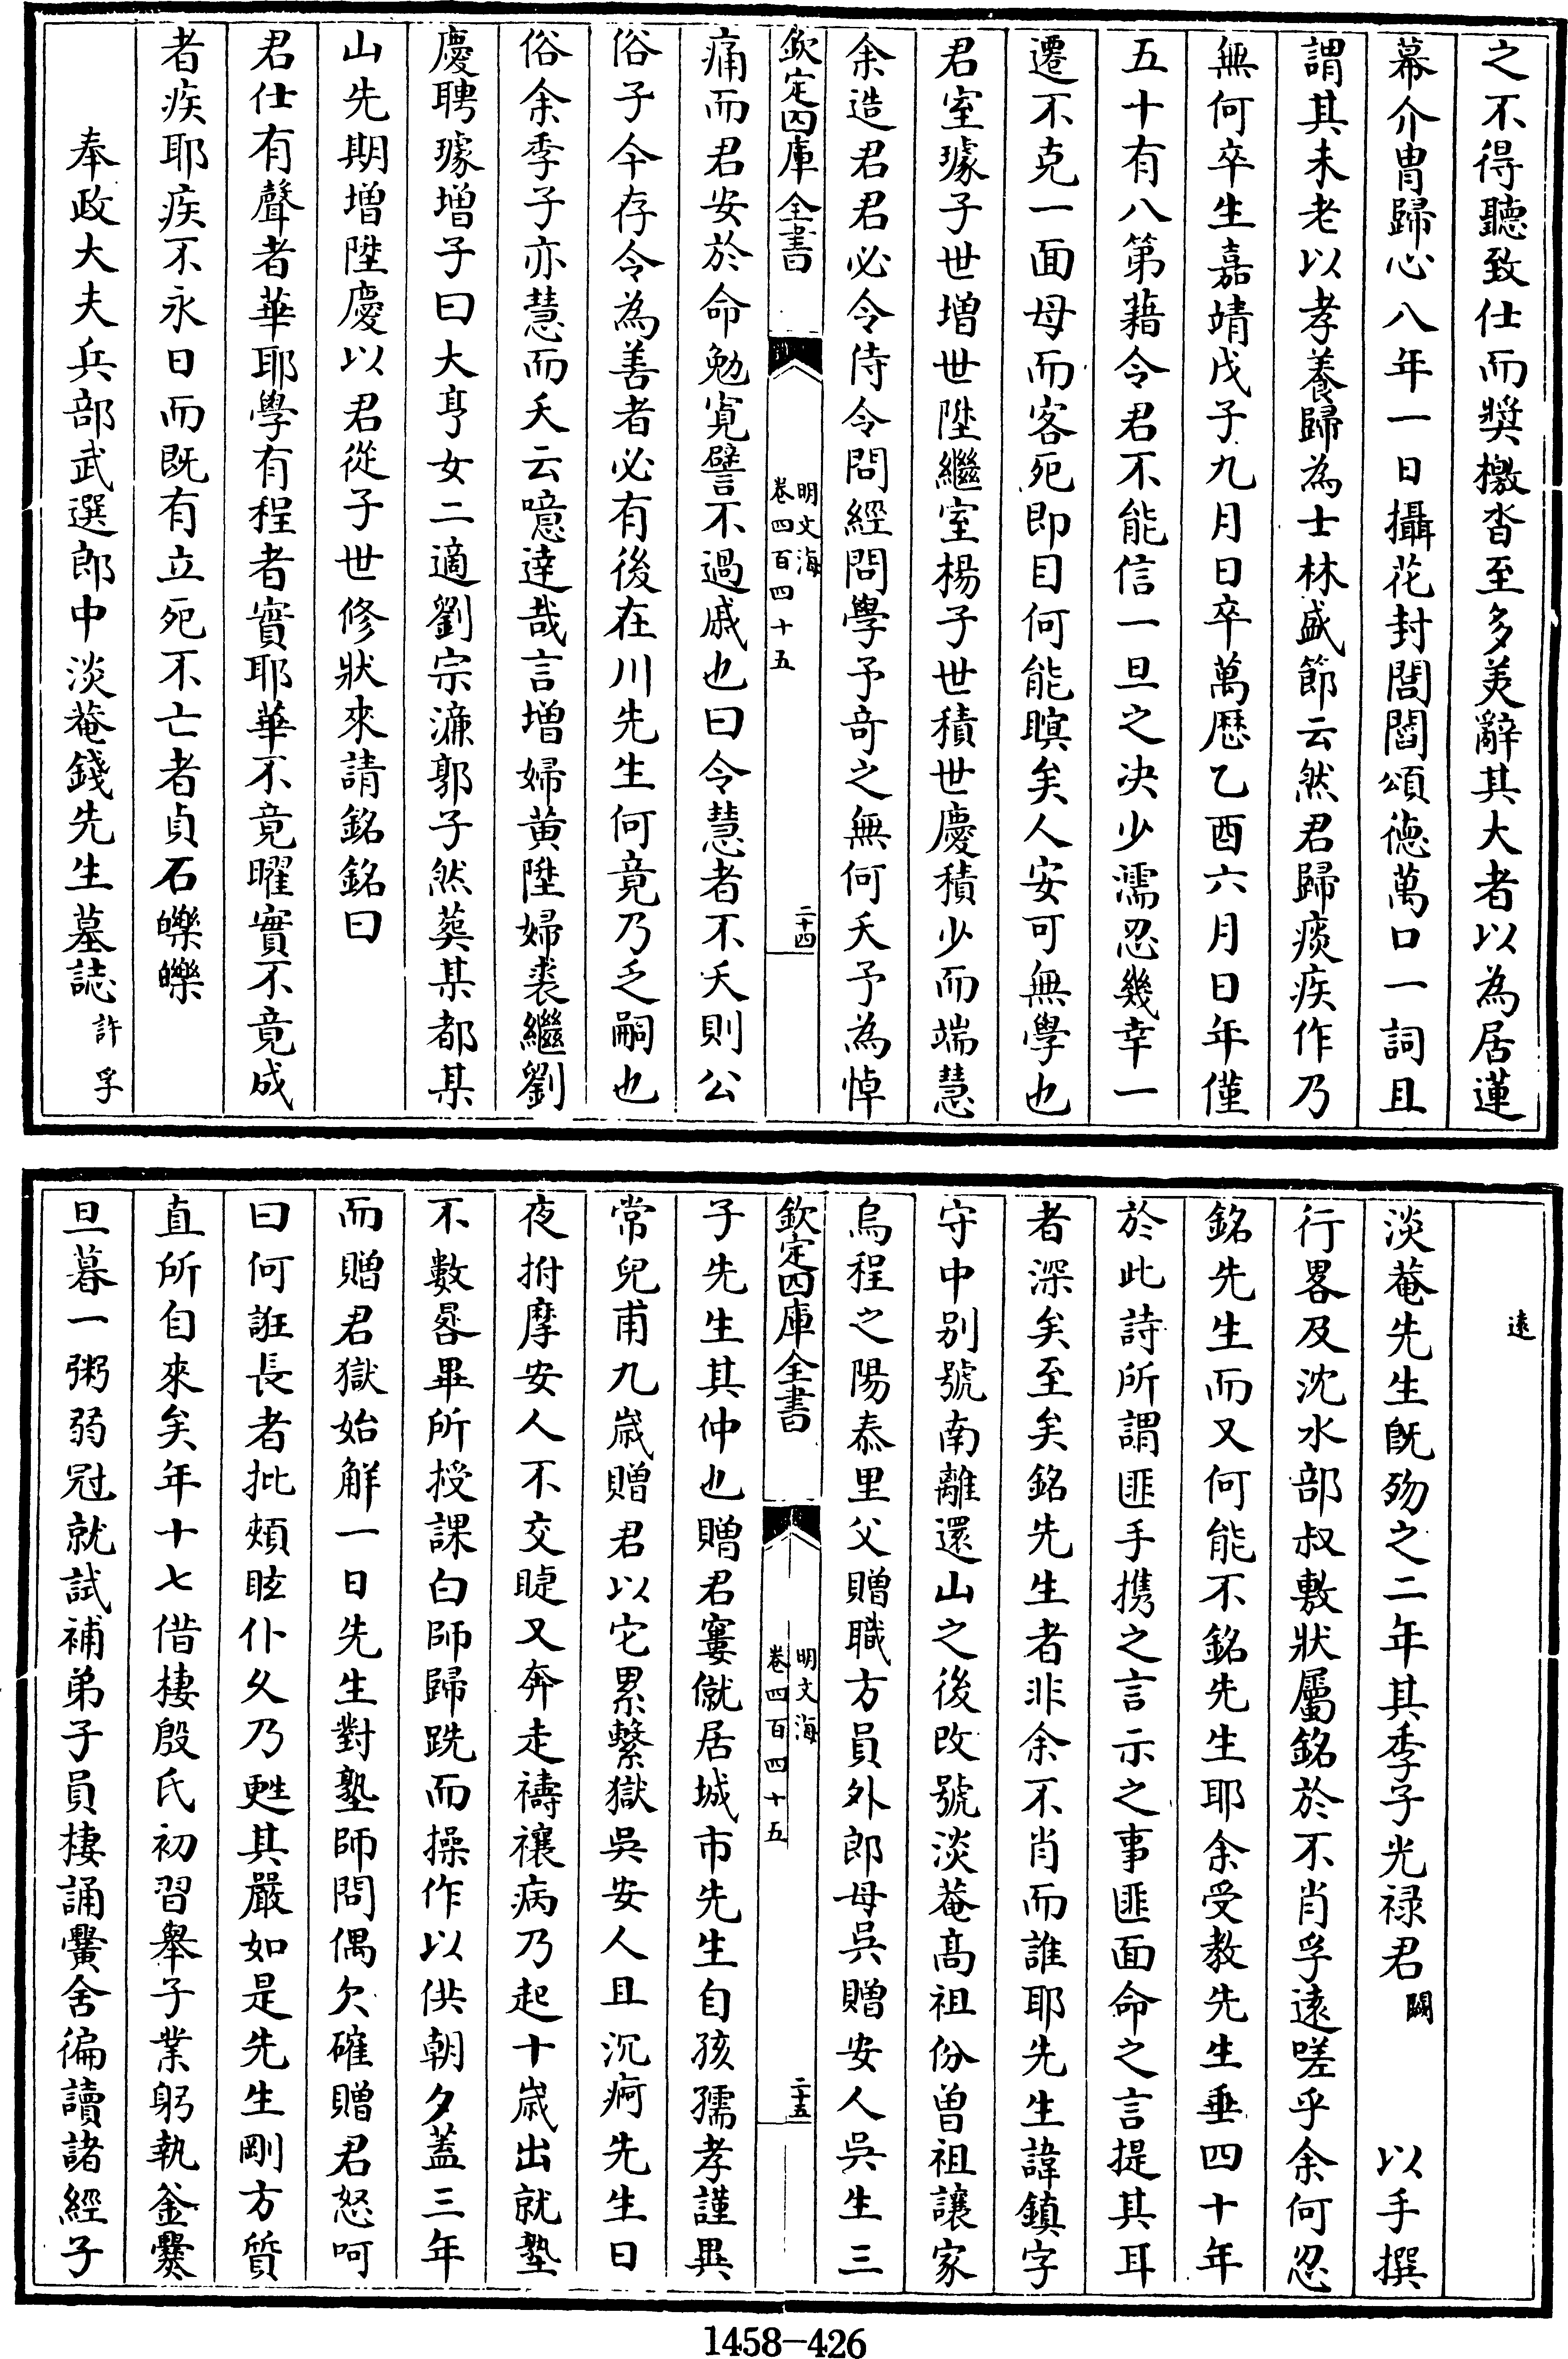 之不得聽致仕而奬檄沓至多美辭其大者以為居蓮
幕介胄歸心八年一日攝花封閭閻頌徳萬口一詞且
謂其未老以孝養歸為士林盛節云然君歸痰疾作乃
無何卒生嘉靖戊子九月日卒萬厯乙酉六月日年僅
五十有八第藉令君不能信一旦之决少濡忍幾幸一
遷不克一面母而客死即目何能瞑矣人安可無學也
君室璩子世増世陞繼室楊子世積世慶積少而端慧
余造君君必令侍令問經問學予竒之無何夭予為悼
欽定四庫全書
明文海
卷四百四十五
二十四
痛而君安於命勉寛譬不過戚也曰令慧者不夭則公
俗子今存令為善者必有後在川先生何竟乃乏嗣也
俗余季子亦慧而夭云噫達哉言増婦黄陞婦裘繼劉
慶聘璩増子曰大亨女二適劉宗濂郭子然葬某都某
山先期増陞慶以君從子世修狀來請銘銘曰
君仕有聲者華耶學有程者實耶華不竟曜實不竟成
者疾耶疾不永日而既有立死不亡者貞石皪皪
奉政大夫兵部武選郎中淡菴錢先生墓誌許孚
遠
淡菴先生既歿之二年其季子光禄君闕 以手撰
行畧及沈水部叔敷狀屬銘於不肖孚遠嗟乎余何忍
銘先生而又何能不銘先生耶余受教先生垂四十年
於此詩所謂匪手携之言示之事匪面命之言提其耳
者深矣至矣銘先生者非余不肖而誰耶先生諱鎮字
守中别號南離還山之後改號淡菴髙祖份曽祖讓家
烏程之陽泰里父贈職方員外郎母吳贈安人吳生三
欽定四庫全書
明文海
卷四百四十五
二十五
子先生其仲也贈君窶僦居城市先生自孩孺孝謹異
常兒甫九嵗贈君以它累繫獄吳安人且沉疴先生日
夜拊摩安人不交睫又奔走禱禳病乃起十嵗出就塾
不數晷畢所授課白師歸跣而操作以供朝夕蓋三年
而贈君獄始解一日先生對塾師問偶欠確贈君怒呵
曰何誑長者批頰眩仆乆乃甦其嚴如是先生剛方質
直所自來矣年十七借棲殷氏初習舉子業躬執釡爨
旦暮一粥弱冠就試補弟子員棲誦黌舍徧讀諸經子
1458-426